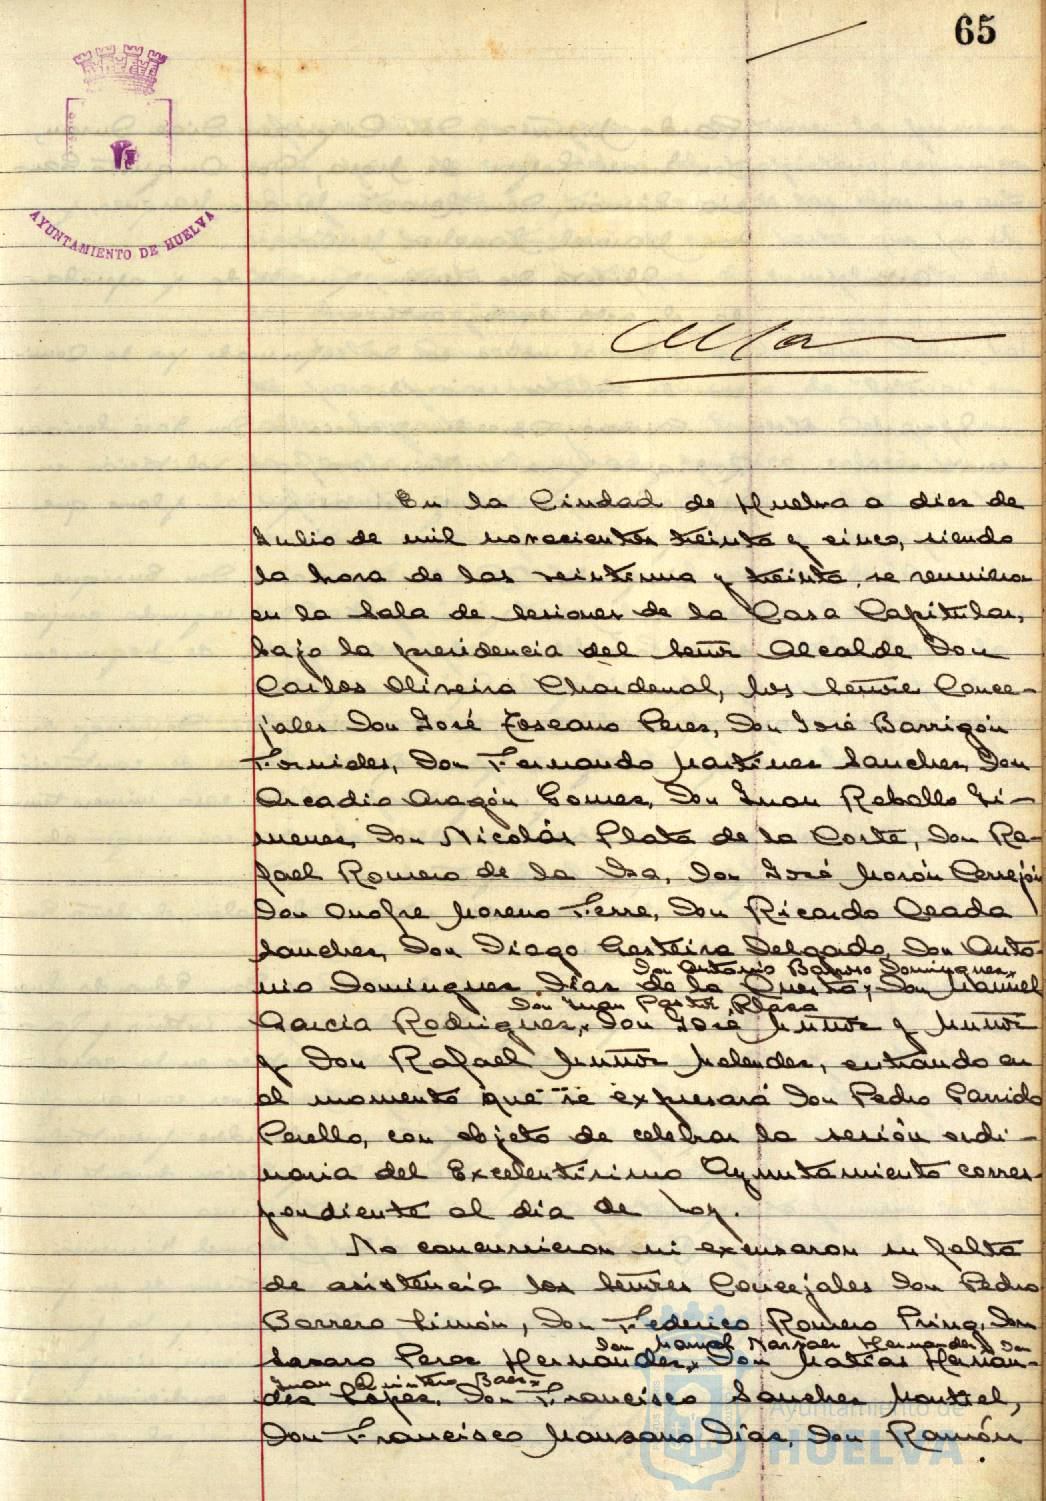 65
AYUNTAMIENTO DE HUELVA
En la Ciudad de Huelva a diez de
Julio de mil novecientos treinta y cinco, siendo
la hora de las veintiuna y treinta, se reunieron
en la Sala de Sesiones de la Casa Capitular,
bajo la presidencia del Señor Alcalde Don
Carlos Oliveira Chardenal, los Señores Conce-
jales Don José Toscano Perez, Don José Barrigón
Fornieles, Don Fernando Martinez Sanchez, Don
Arcadio Aragón Gomez, Don Juan Rebollo Ji-
menez, Don Nicolás Plata de la Corte, Don Ra-
fael Romero de la Isa, Don José Morón Cerrejón
Don Onofre Moreno Ferre, Don Ricardo Ceada
Sanchez, Don Diego Gasteira Delgado, Don Anto-
Don Antonio Barroso Dominguez,
nio Dominguez Diaz de la Questa, Don Manuel
Don Juan Pastor Plaza
Garcia Rodriguez, Don José Muñoz y Muñoz
y Don Rafael Muñoz Melendez, entrando en
el momento que se expresará Don Pedro Garrido
Perelló, con objeto de celebrar la sesión ordi-
naria del Excelentísimo Ayuntamiento corres-
pondiente al dia de hoy.
No concurrieron ni excusaron su falta
de asistencia los Señores Concejales Don Pedro
Borrero Limón, Don Federico Romero Prina, Don
Don Manuel Narvaez Hernandez, Don
Lazaro Perez Hernandez, Don Matías Hernan-
Juan Quintero Baez
dez Lopez, Don Francisco Sanchez Montiel,
Don Francisco Manzano Diaz, Don Ramón
Ayuntamiento de
HUELVA